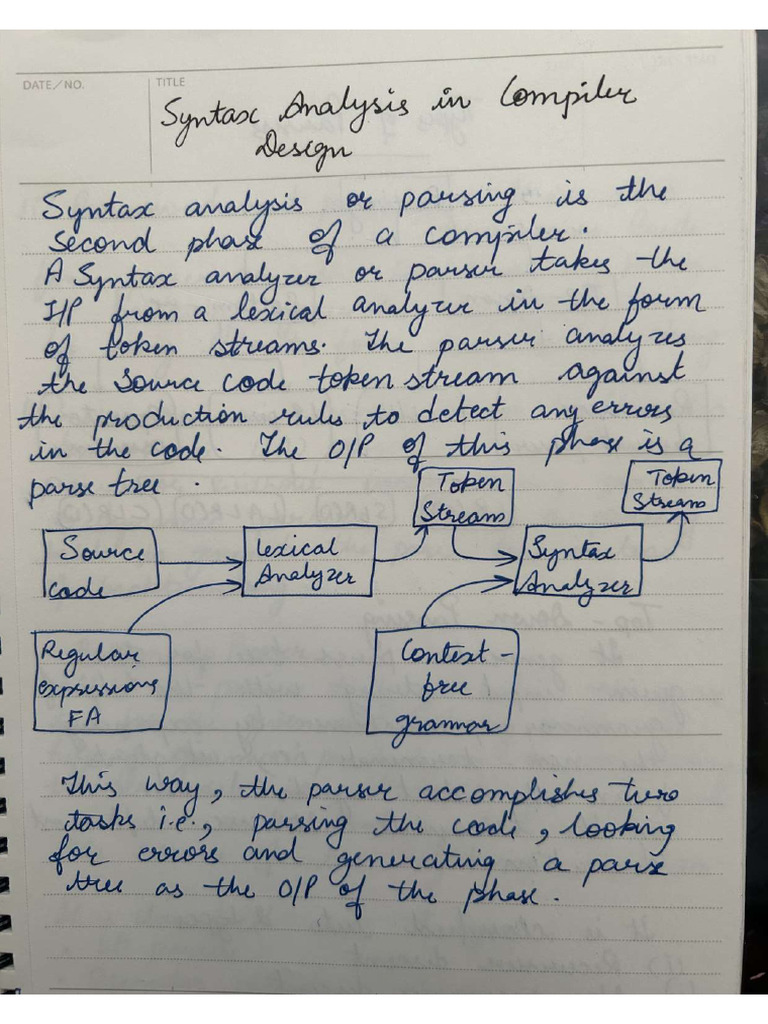 DATE/NO.
TITLE
Syntax Analysis in Compiler
Design
Syntax analysis or parsing is the
second phase of a compiler.
A Syntax analyzer or parser takes the
I/P from a lexical analyzer in the form
of token streams. The parser analyzes
the source code token stream against
the production rules to detect any errors
in the code. The O/P of this phase is a
parse tree.
Token
Stream
Token
Stream
Source
code
Lexical
Analyzer
Syntax
Analyzer
Regular
expressions
FA
Context-
free
grammar
This way, the parser accomplishes two
tasks i.e., parsing the code, looking
for errors and generating a parse
tree as the O/P of the phase.